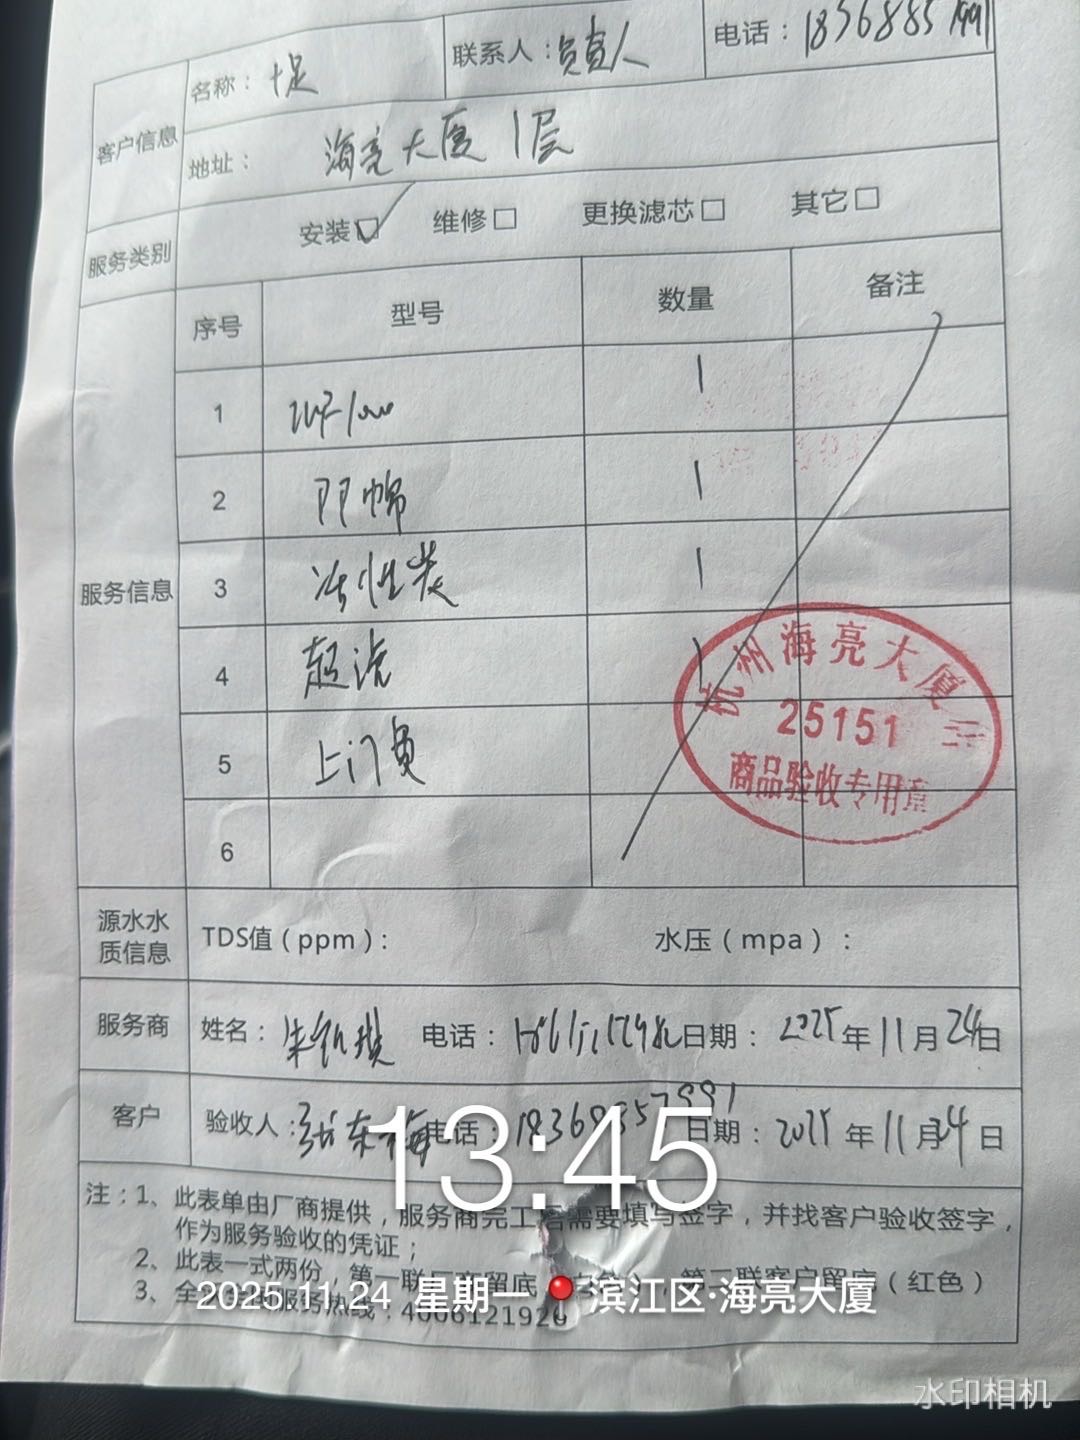 名称：十足 联系人：负责人 电话：18368857991
客户信息
地址： 海亮大厦1层
服务类别 安装☑ 维修□ 更换滤芯□ 其它□
序号 型号 数量 备注
1 1
2 PP棉 1
服务信息 3 活性炭 1
4 超滤 1
5 上门费
6
杭州海亮大厦
25151
商品验收专用章
源水水质信息 TDS值（ppm）： 水压（mpa）：
服务商 姓名： 电话： 日期：2025年11月24日
客户 验收人： 电话：18368857991 日期：2025年11月24日
注：1、此表单由厂商提供，服务商完工后需要填写签字，并找客户验收签字，
作为服务验收的凭证；
2、此表一式两份，第一联厂商留底 ，第二联客户留底（红色）
3、全 服务热线：4006121920
13:45
2025.11.24 星期一 滨江区·海亮大厦
水印相机